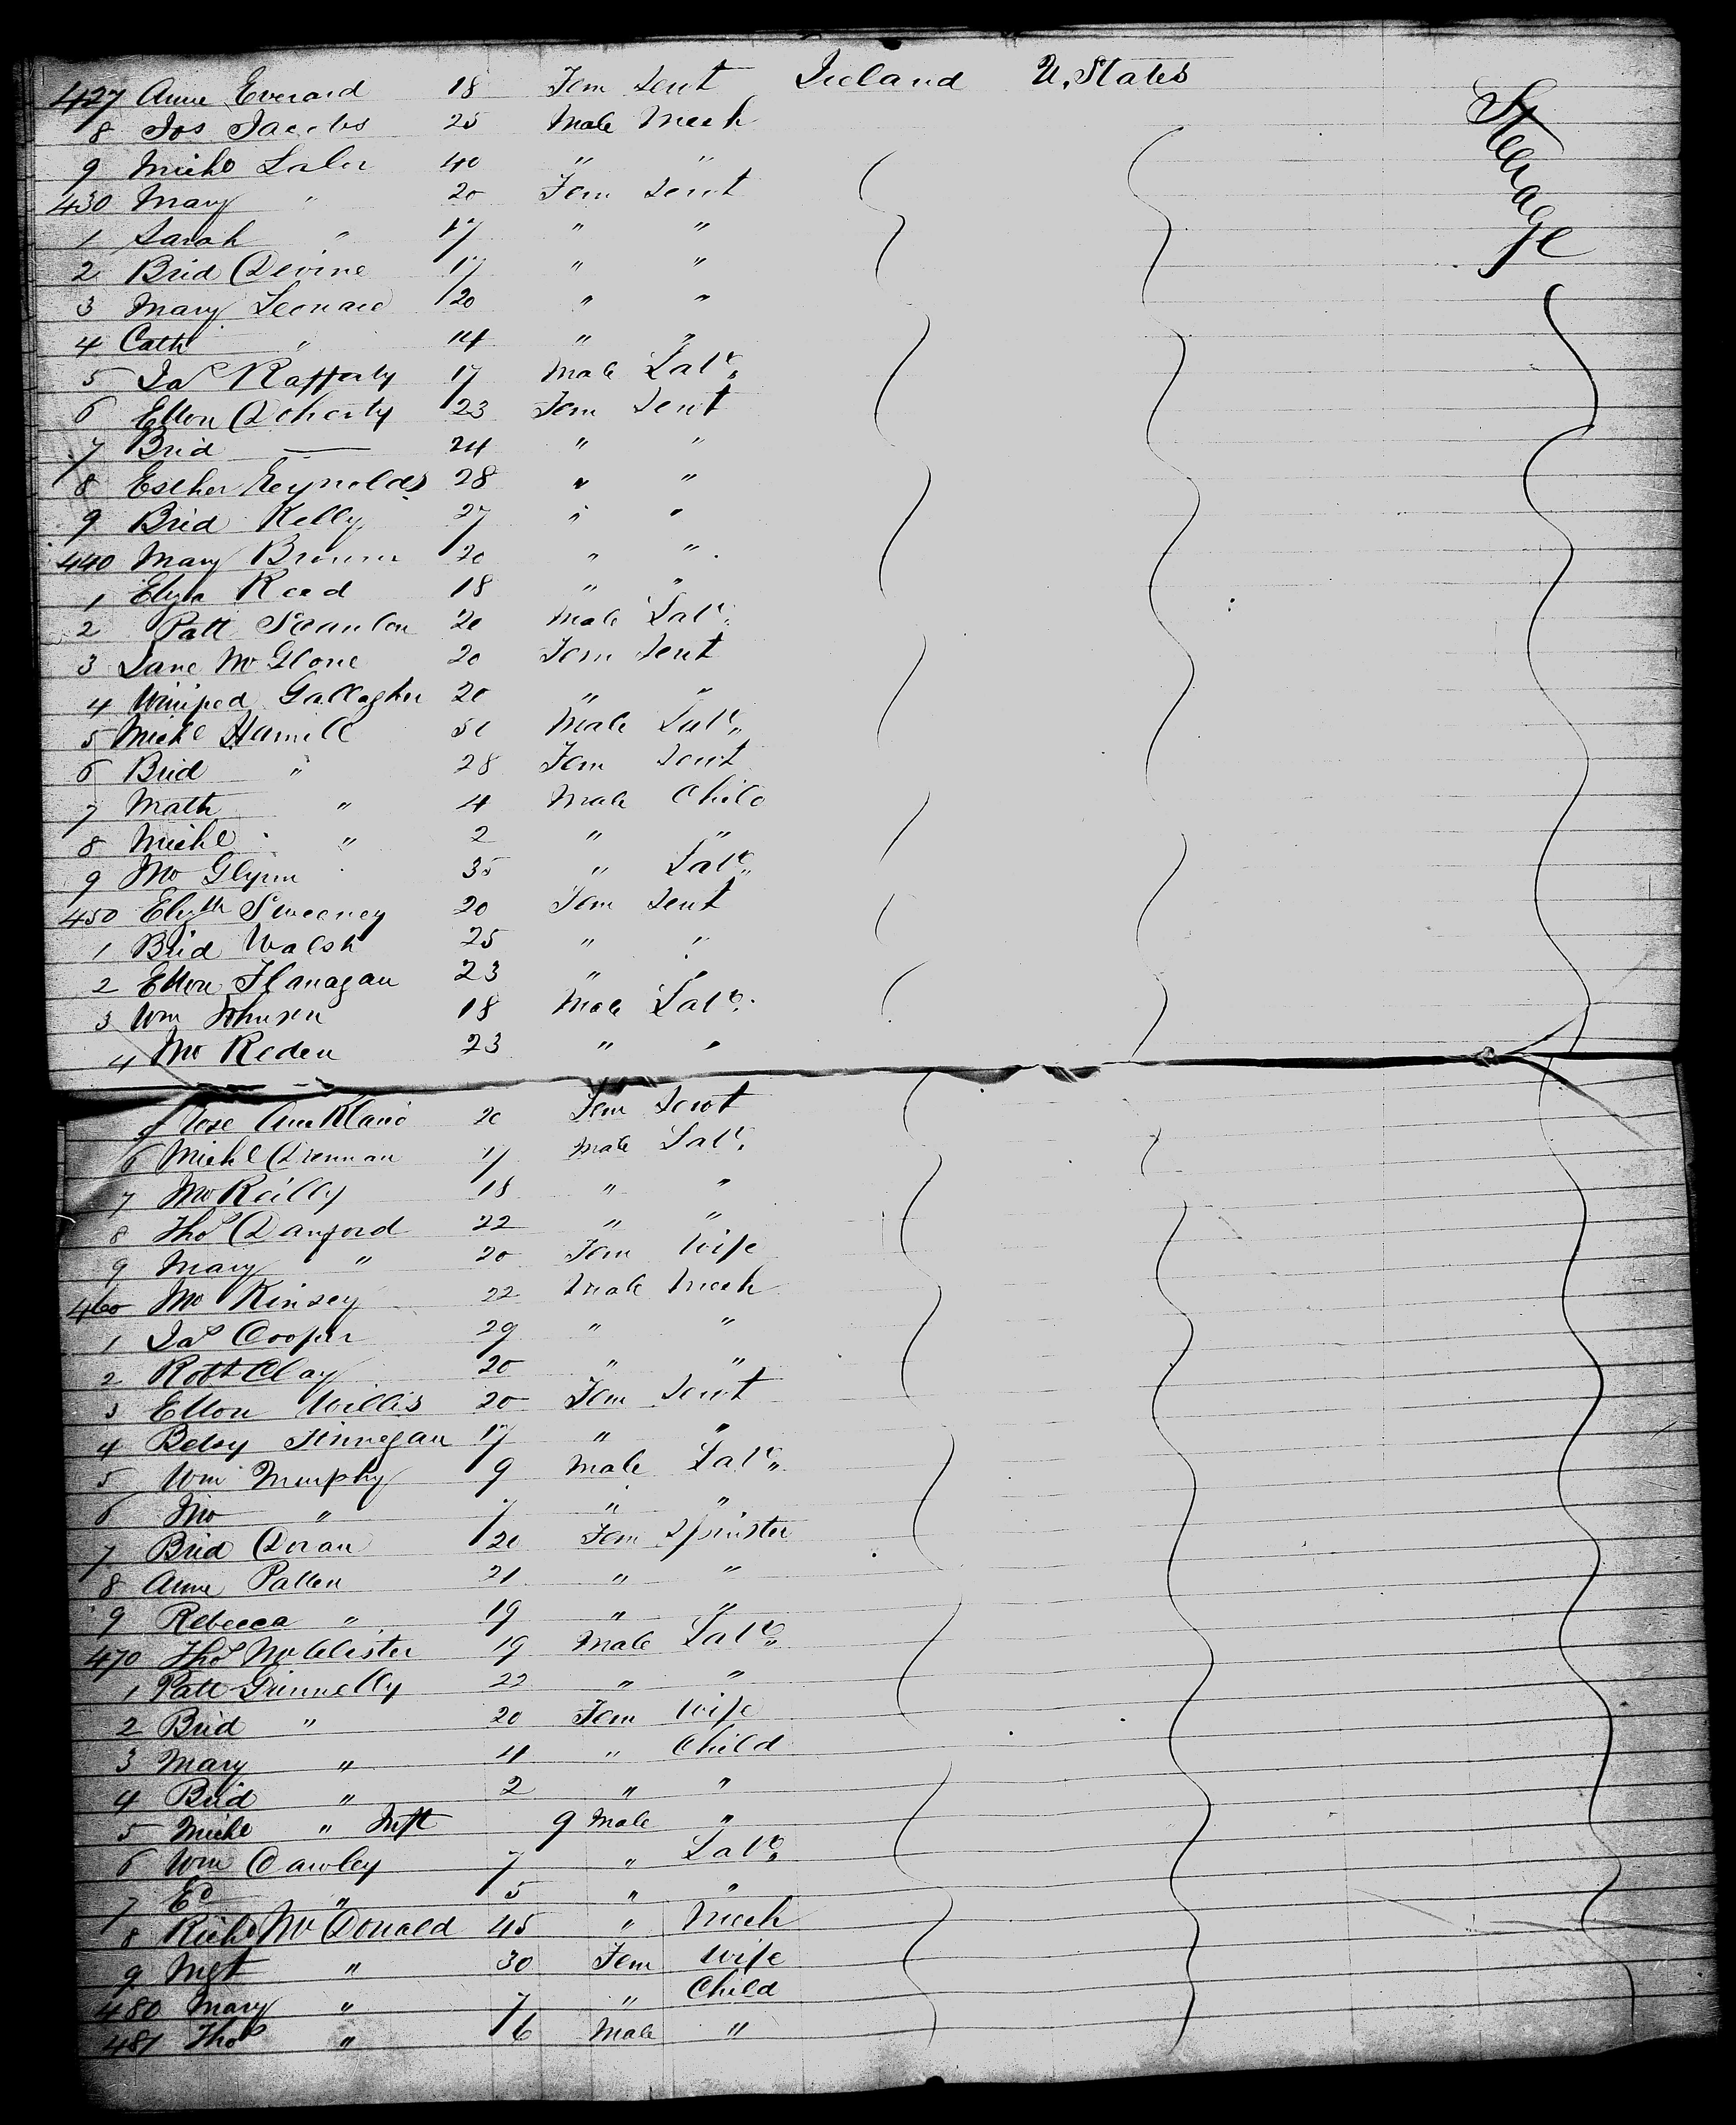 427 Anne Everard 18 Fem Servt Ireland U. States
8 Jos Jacobs 25 Male Mech
9 Michl Lalor 40 " "
430 Mary " 20 Fem Servt
1 Sarah " 17 " "
2 Brid Devine 17 " "
3 Mary Leonard 20 " "
4 Cath " 14 " "
5 Jas Rafferty 17 Male Labr
6 Ellen Doherty 23 Fem Servt
7 Brid — 24 " "
8 Esther Reynolds 28 " "
9 Brid Kelly 27 " "
440 Mary Brown 20 " "
1 Eliza Reed 18 " "
2 Patt Scanlon 20 Male Labr
3 Jane McGlone 20 Fem Servt
4 Winifred Gallagher 20 " "
5 Michl Hamill Male Labr
6 Brid " 28 Fem Servt
7 Math " 4 Male Child
8 Michl " 2 " "
9 Jno Glynn 35 " Labr
450 Elizth Sweeney 20 Fem Servt
1 Brid Walsh 25 " "
2 Ellen Flanagan 23 " "
3 Wm Johnson 18 Male Labr
4 Jno Reden 23 " "
Rose 20 Fem Servt
6 Michl Drennan 17 Male Labr
7 Jno Reilly 18 " "
8 Thos Danford 22 " "
9 Mary " 20 Fem Wife
460 Jno Kinsey 22 Male Mech
1 Jas Cooper 29 " "
2 Robt Clay 20 " "
3 Ellen Willis 20 Fem Servt
4 Betsy Finnegan 17 " "
5 Wm Murphy 9 Male Labr
6 Jno " 7 " "
7 Brid Doran 20 Fem Spinster
8 Anne Patten 21 " "
9 Rebecca " 19 " "
470 Thos McAlister 19 Male Labr
1 Patt Ginnelly 22 " "
2 Brid " 20 Fem Wife
3 Mary " 4 " Child
4 Brid " 2 " "
5 Michl " Inft 9 Male "
6 Wm Cawley 7 " Labr
7 Ed " 5 " "
8 Richd McDonald 45 " Mech
9 Mgt " 30 Fem Wife
480 Mary " 7 " Child
481 Thos " 6 Male "
Steerage